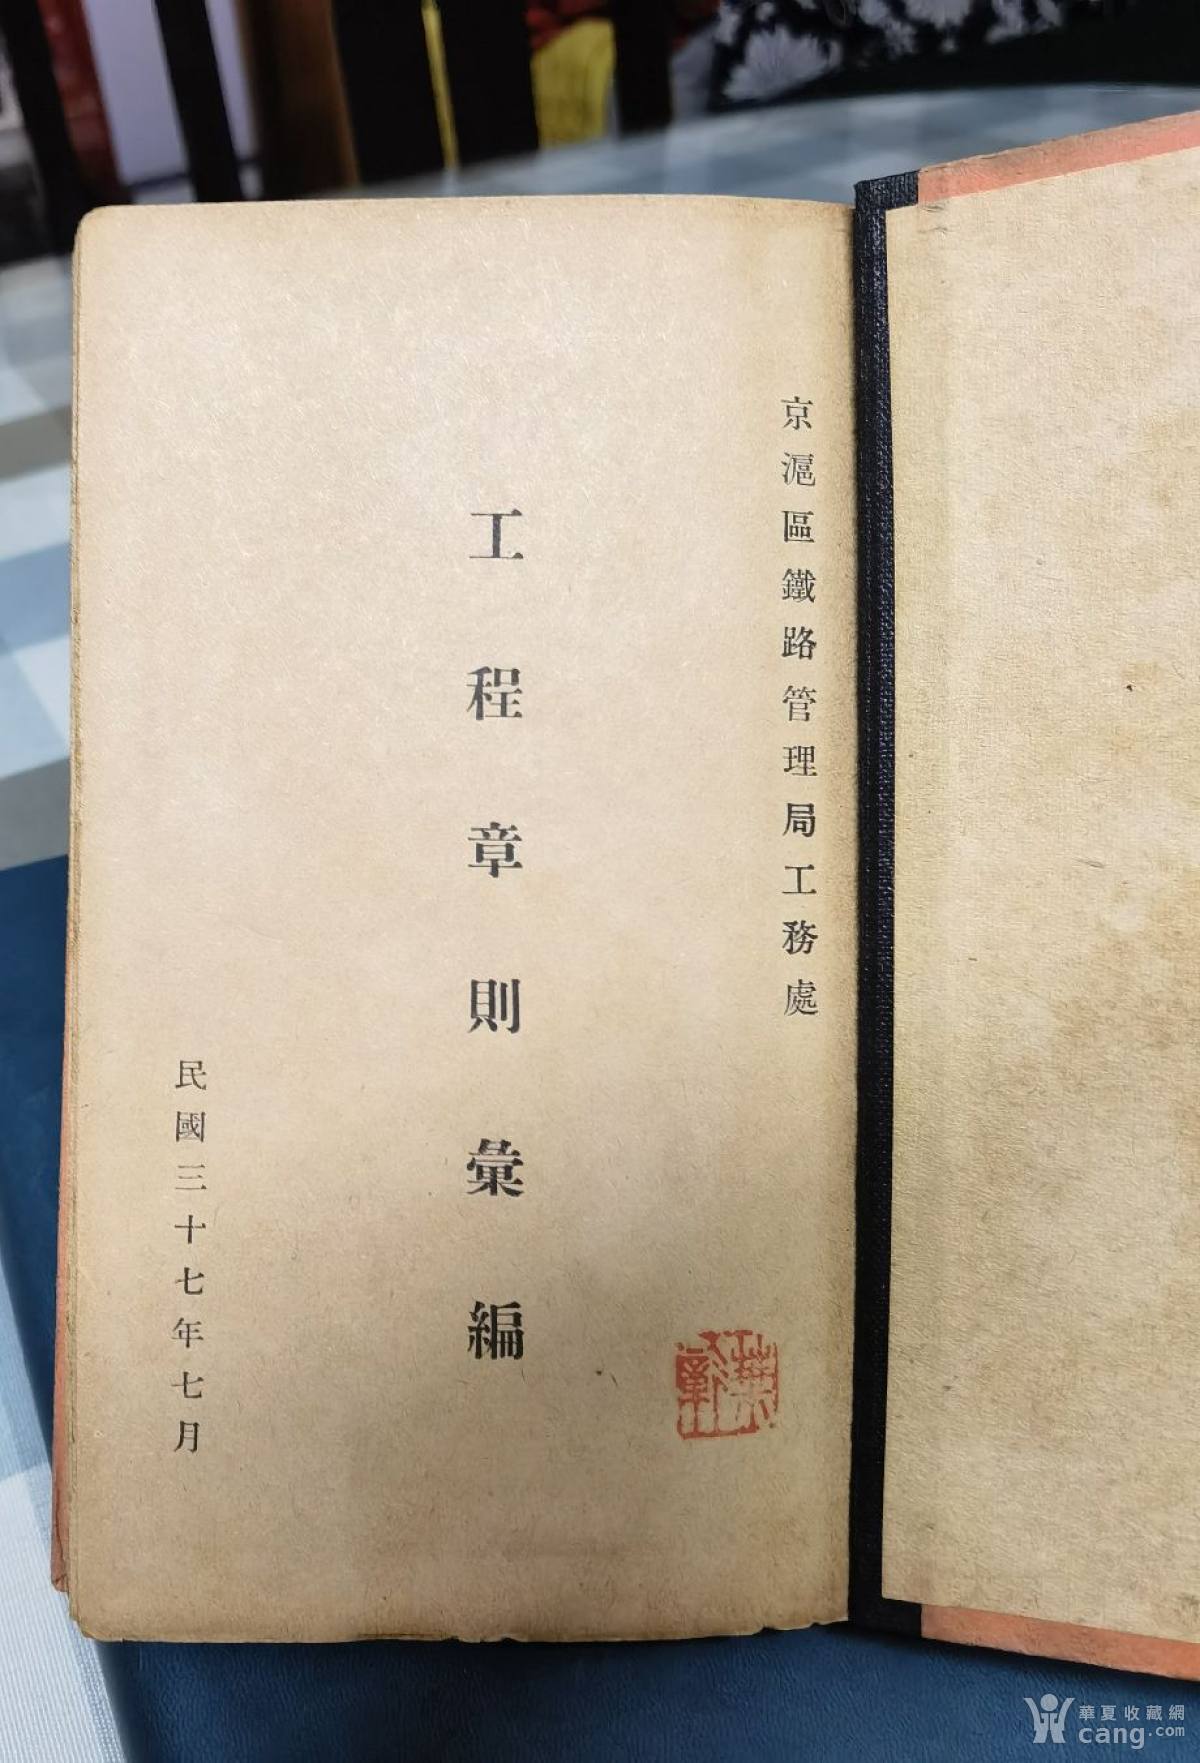 京滬區鐵路管理局工務處
工程章則彙編
民國三十七年七月
華夏收藏網
cang.com